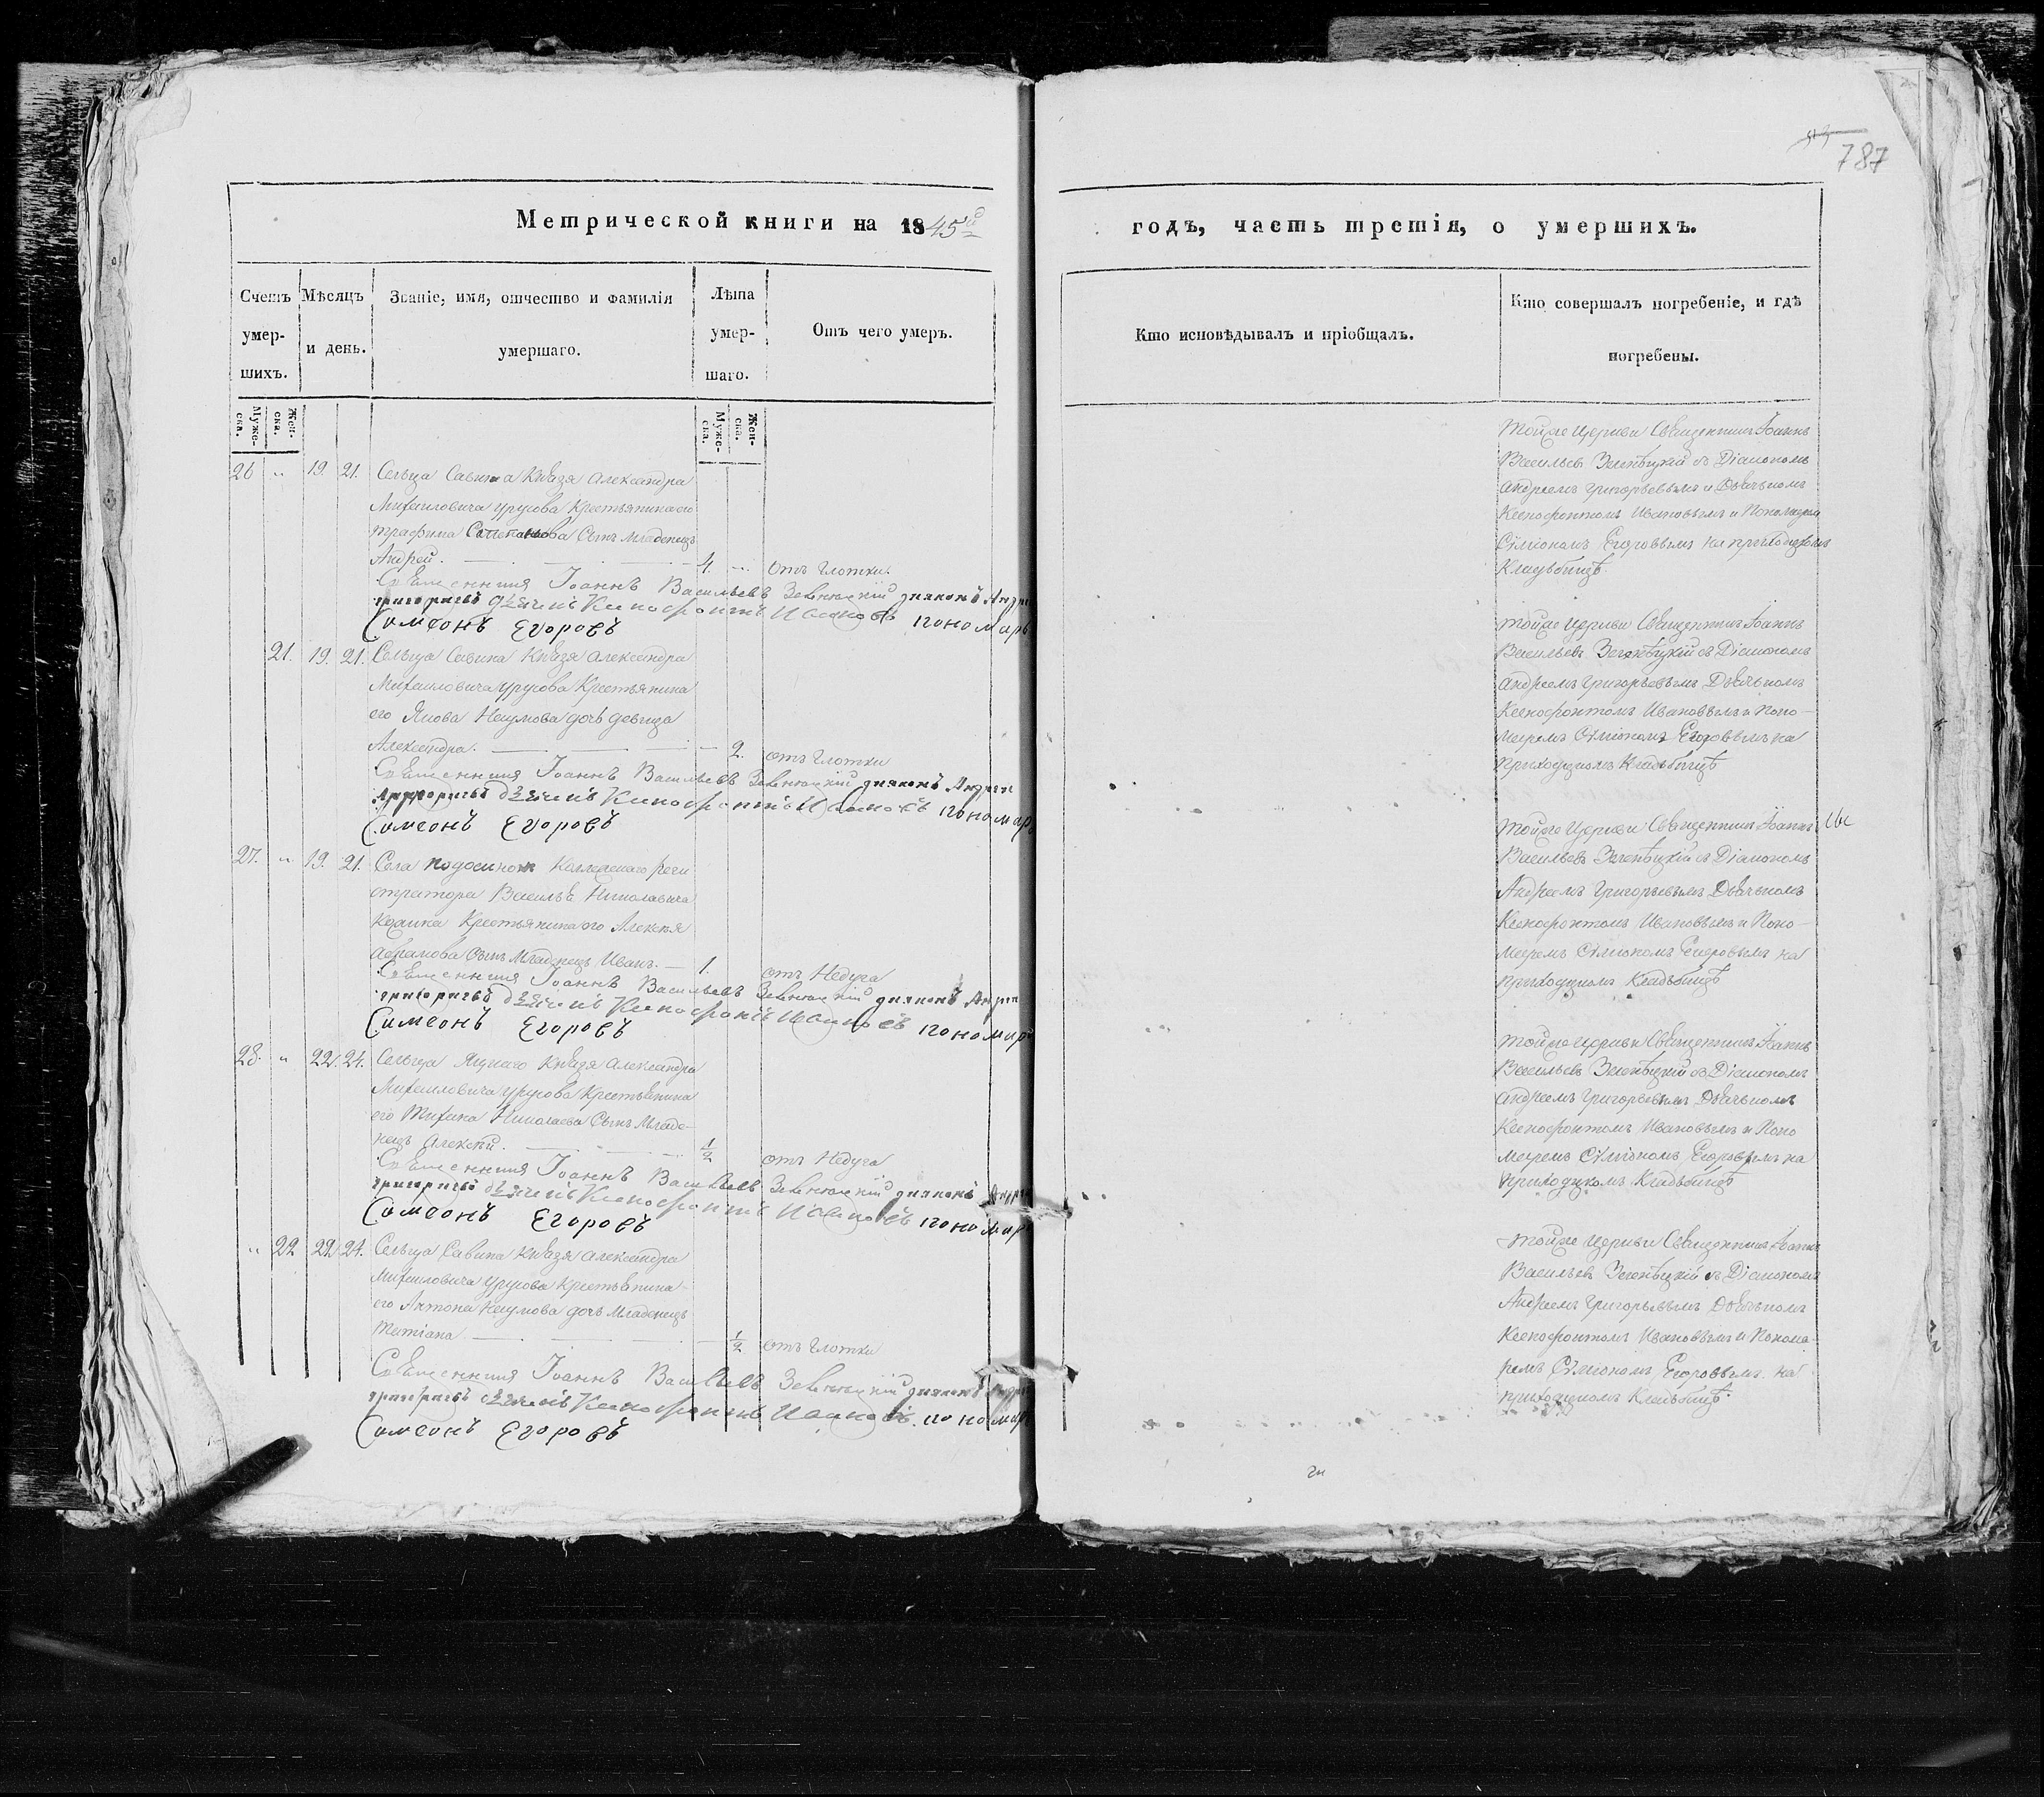 787
Метрической книги на 1845й
годъ, часть третія, о умершихъ.
Счетъ умер-шихъ.
Мѣсяцъ и день.
Званіе, имя, отчество и фамилія умершаго.
Лѣта умер-шаго.
Отъ чего умеръ.
Кто исповѣдывалъ и пріобщалъ.
Кто совершалъ погребеніе, и гдѣ погребены.
Муже-ска.
Жен-ска.
Муже-ска.
Жен-ска.
26 „ 19. 21. Сельца Савина Князя Александра
Михаиловича Урусова Крестьянина его
Трофима Степанова Сынъ младенецъ
Андрей. 4. „ отъ глотки.
Священникъ Іоаннъ Васильевъ діаконъ Андрей
Григорьевъ дьячекъ Ксенофонтъ Ивановъ пономарь
Симеонъ Егоровъ
Тойже Церкви Священникъ Іоаннъ
Васильевъ съ Діакономъ
Андреемъ Григорьевымъ и Дьячькомъ
Ксенофонтомъ Ивановымъ и Пономаремъ
Сѵміономъ Егоровымъ на приходскомъ
Кладьбищѣ.
21. 19. 21. Сельца Савина Князя Александра
Михаиловича Урусова Крестьянина
его Якова Наумова дочь девица
Александра. 2. отъ глотки
Священникъ Іоаннъ Васильевъ діаконъ Андрей
Григорьевъ дьячекъ Ксенофонтъ Ивановъ пономарь
Симеонъ Егоровъ
Тойже Церкви Священникъ Іоаннъ
Васильевъ съ Діакономъ
Андреемъ Григорьевымъ Дьячькомъ
Ксенофонтомъ Ивановымъ и Поно-
маремъ Сѵміономъ Егоровымъ на
Приходскомъ Кладьбищѣ
27. „ 19. 21. Села Подосинокъ Коллежскаго реги
стратора Василья Николаевича
Крестьянина его Алексѣя
Абрамова Сынъ Младенецъ Иванъ. 1. отъ Недуга
Священникъ Іоаннъ Васильевъ діаконъ Андрей
Григорьевъ дьячекъ Ксенофонтъ Ивановъ пономарь
Симеонъ Егоровъ
Тойже Церкви Священникъ Іоаннъ
Васильевъ съ Діакономъ
Андреемъ Григорьевымъ Дьячькомъ
Ксенофонтомъ Ивановымъ и Поно-
маремъ Сѵміономъ Егоровымъ на
Приходскомъ Кладьбищѣ
28. „ 22. 24. Сельца Князя Александра
Михаиловича Урусова Крестьянина
его Тихина Николаева Сынъ Младе-
нецъ Алексѣй. 1/2 отъ Недуга
Священникъ Іоаннъ Васильевъ діаконъ Андрей
Григорьевъ дьячекъ Ксенофонтъ Ивановъ пономарь
Симеонъ Егоровъ
Тойже Церкви Священникъ Іоаннъ
Васильевъ съ Діакономъ
Андреемъ Григорьевымъ Дьячькомъ
Ксенофонтомъ Ивановымъ и Поно
маремъ Сѵміономъ Егоровымъ на
Приходскомъ Кладьбищѣ
„ 22 22. 24. Сельца Савина Князя Александра
Михаиловича Урусова Крестьянина
его Антона Наумова дочь Младенецъ
Татіана 1/2 отъ глотки
Священникъ Іоаннъ Васильевъ діаконъ Андрей
Григорьевъ дьячекъ Ксенофонтъ Ивановъ пономарь
Симеонъ Егоровъ
Тойже Церкви Священникъ Іоаннъ
Васильевъ съ Діакономъ
Андреемъ Григорьевымъ Дьячькомъ
Ксенофонтомъ Ивановымъ и Понома-
ремъ Сѵміономъ Егоровымъ на
приходскомъ Кладьбищѣ.